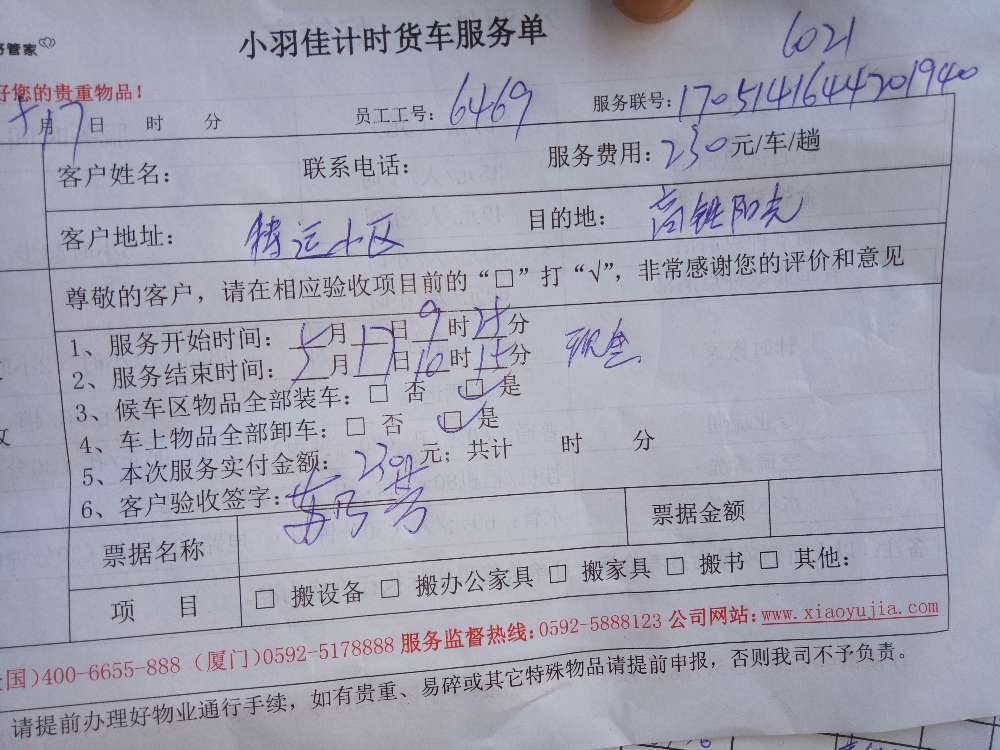 管家
小羽佳计时货车服务单
6021
好您的贵重物品！
5月17日 时 分 员工工号：6469 服务联号：1705141644201940
客户姓名： 联系电话： 服务费用：230元/车/趟
客户地址：特运小区 目的地：高铁阳光
尊敬的客户，请在相应验收项目前的“□”打“√”，非常感谢您的评价和意见
1、服务开始时间：5月17日9时25分 现金
2、服务结束时间：5月17日10时15分
3、候车区物品全部装车：□ 否 □ 是
4、车上物品全部卸车：□ 否 □ 是
5、本次服务实付金额：230元；共计 时 分
6、客户验收签字：
票据名称 票据金额
项 目 □ 搬设备 □ 搬办公家具 □ 搬家具 □ 搬书 □ 其他：
国)400-6655-888 (厦门)0592-5178888 服务监督热线:0592-5888123 公司网站:www.xiaoyujia.com
请提前办理好物业通行手续，如有贵重、易碎或其它特殊物品请提前申报，否则我司不予负责。